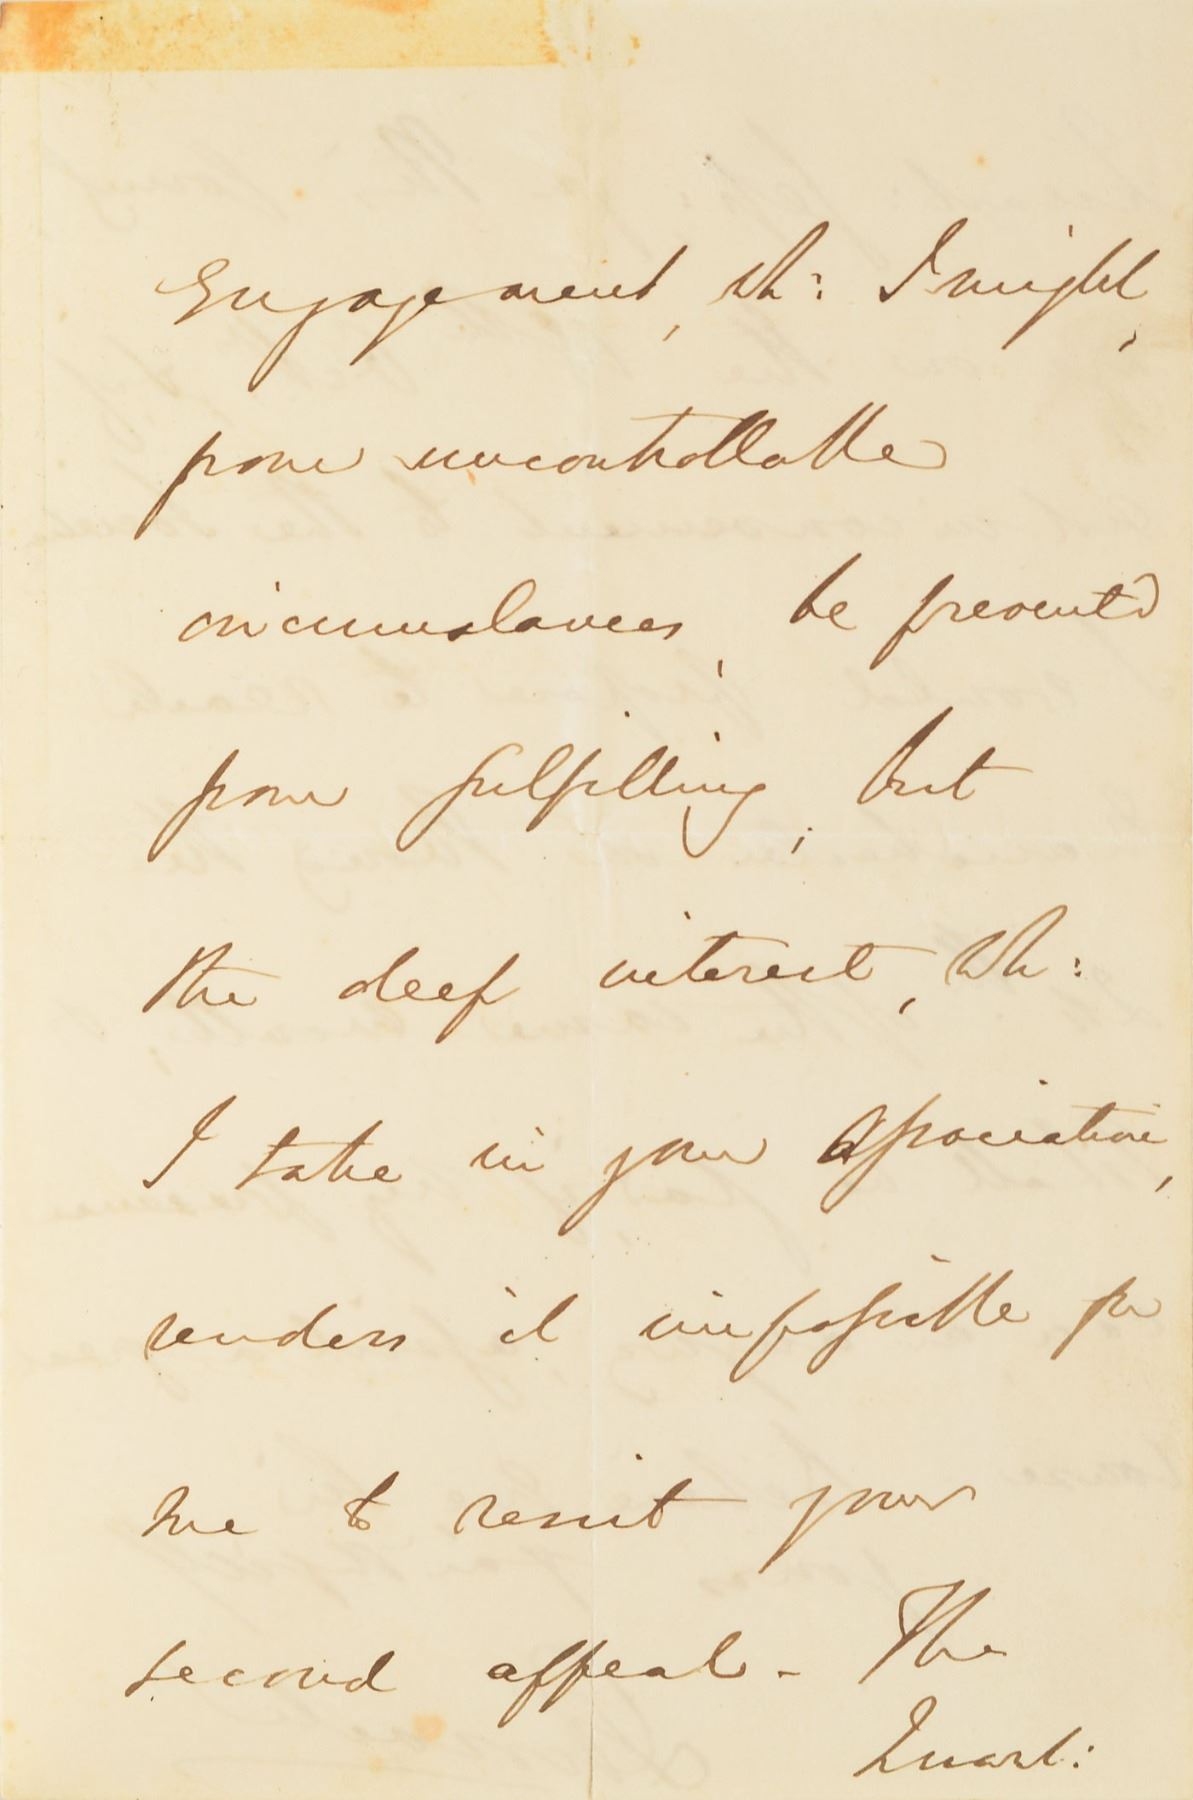 Engagement, wh: I might,
from uncontrollable
circumstances, be prevented
from fulfilling; but
the deep interest, wh:
I take in your Association,
renders it impossible for
me to resist your
second appeal. The
Quart: